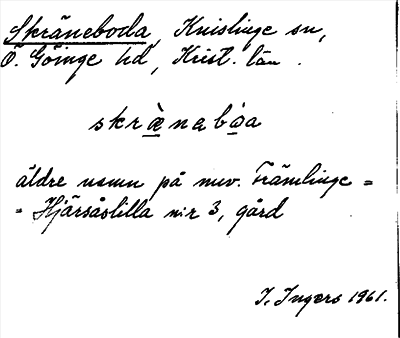 Skräneboda, Knislinge sn,
Ö. Göinge hd, Krist. län.
skræ̀nebòa
äldre namn på nuv. Främlinge =
= Hjärsåslilla n:r 3, gård
I. Ingers 1961.